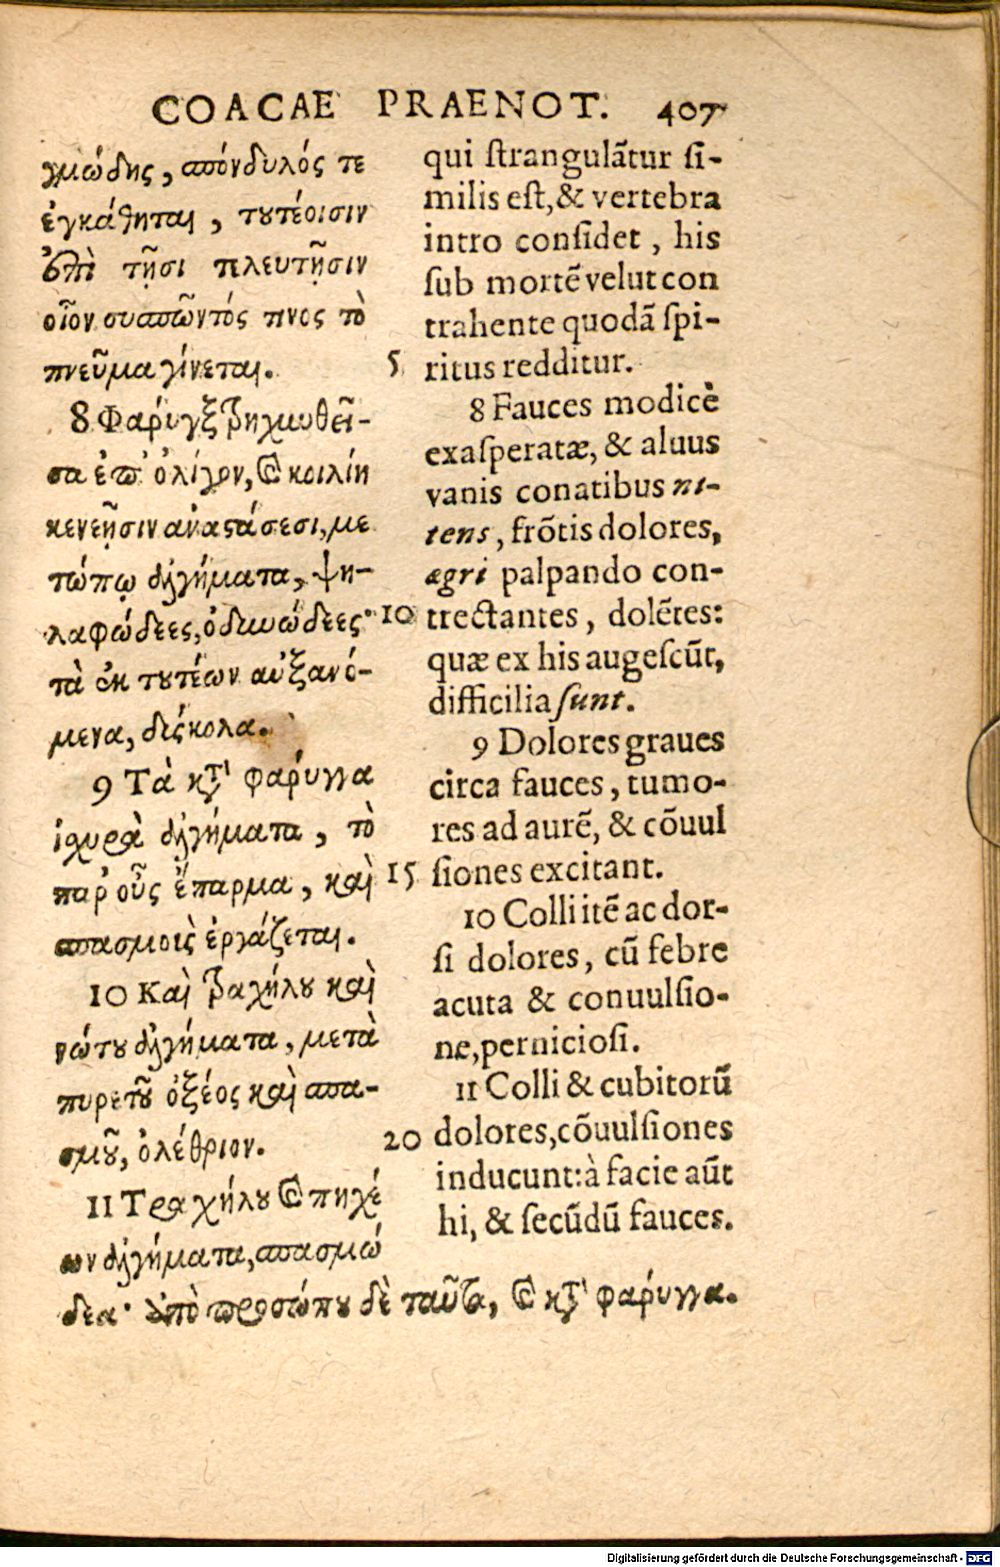 COACAE PRAENOT. 407
γμώδης, σπόνδυλός τε
ἐγκάθηται, τουτέοισιν
ἐπὶ τῇσι πλευτῇσιν
οἷον συσπῶντός τινος τὸ
πνεῦμα γίνεται.
8 Φαρύγξ τρηχυνθεῖ-
σα ἐπ' ὀλίγον, καὶ κοιλίη
κενεῇσιν ἀναστάσεσι, με
τώπῳ ἀλγήματα, ψη-
λαφώδεες, ὀδυνώδεες·
τὰ ἐκ τουτέων αὐξανό-
μενα, δύσκολα.
9 Τὰ κατ' φαρυγγα
ἰσχυρὰ ἀλγήματα, τὸ
παρ' οὖς ἔπαρμα, καὶ
σπασμοὺς ἐργάζεται.
10 Καὶ τραχήλου καὶ
νώτου ἀλγήματα, μετὰ
πυρετοῦ ὀξέος καὶ σπα-
σμοῦ, ὀλέθριον.
11 Τραχήλου καὶ πηχέ
ων ἀλγήματα, σπασμώ
δεα· ἀπὸ προσώπου δὲ ταῦτα, καὶ κατ' φαρυγγα.
qui ſtrangulãtur ſi-
milis eſt, & vertebra
intro conſidet, his
ſub mortẽ velut con
trahente quodã ſpi-
5 ritus redditur.
8 Fauces modicè
exaſperatæ, & aluus
vanis conatibus ni-
tens, frõtis dolores,
ægri palpando con-
10 trectantes, dolẽtes:
quæ ex his augeſcũt,
difficilia ſunt.
9 Dolores graues
circa fauces, tumo-
res ad aurẽ, & cõuul
15 ſiones excitant.
10 Colli itẽ ac dor-
ſi dolores, cũ febre
acuta & conuulſio-
ne, pernicioſi.
11 Colli & cubitorũ
20 dolores, cõuulſiones
inducunt: à facie aũt
hi, & ſecũdũ fauces.
Digitalisierung gefördert durch die Deutsche Forschungsgemeinschaft - DFG